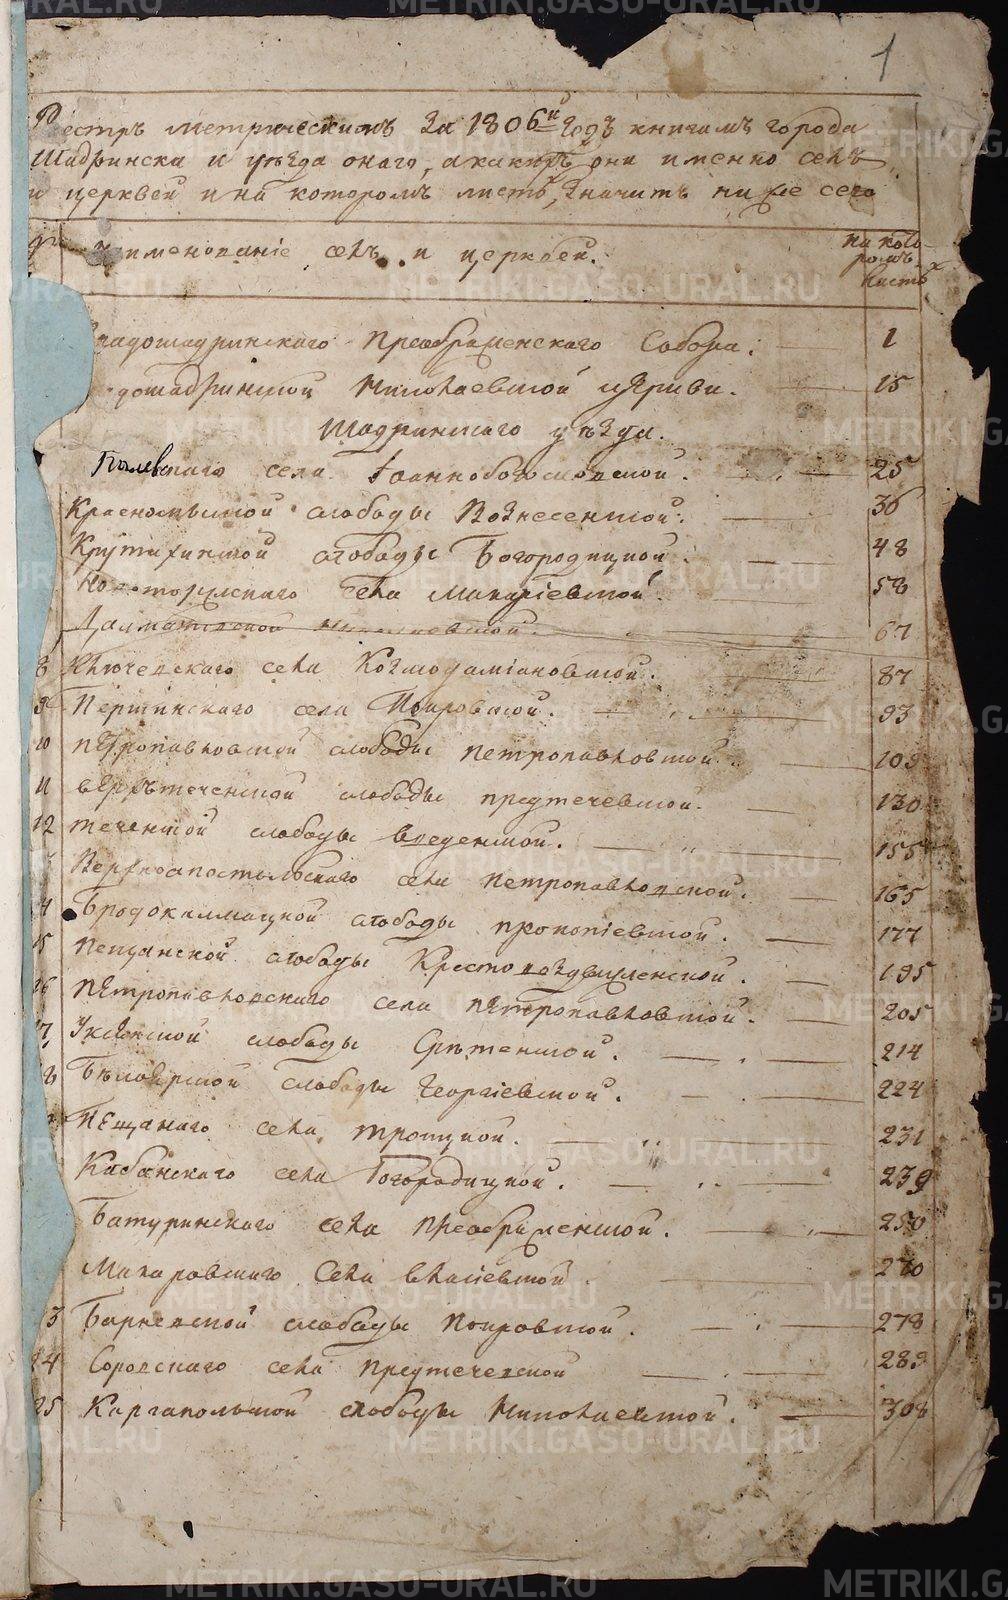 1
Реэстръ метрическимъ За 1806й Годъ книгамъ города
Шадринска и уѣзда онаго, а какихъ они именно селъ
и церквей и на которомъ листѣ, значитъ ниже сего
именованіе селъ и церквей.
на кото-
ромъ
листѣ
градошадринскаго Преображенскаго Собора: 1
дошадринской Николаевской церкви. 15
Шадринскаго уѣзда.
села Іоаннобогословской. 25
Красномыской слободы Вознесенской. 36
Крутихинской слободы Богородицкой 48
села Макаріевской. 58
Далматовской Николаевской. 67
8 Ключевскаго села Козмодаміановской. 87
9 Першинскаго села Покровской. 93
10 Петропавловской слободы Петропавловской 109
11 верхътеченской слободы предтечевской. 130
12 теченской слободы введенской. 155
села Петропавловской. 165
4 Бродокалмацкой слободы прокопіевской. 177
15 Пещанской слободы Крестовоздвиженской. 195
16 Петропавловскаго села Петропавловской. 205
7 Уксянской слободы Срѣтенской. 214
8 Бѣлоярской слободы Георгіевской. 224
Пещанаго села троицкой. 231
Кабанскаго села Богородицкой. 239
Батуринскаго села Преображенской. 250
Макаровскаго Села власіевской 270
3 Барневской слободы Покровской. 278
24 Соровскаго села Предтечевской 289
25 Каргапольской слободы Николаевской. 308
METRIKI.GASO-URAL.RU